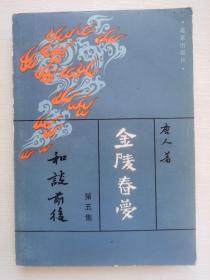 ·北京出版社·
唐人著
金陵春夢
第五集
和談前後